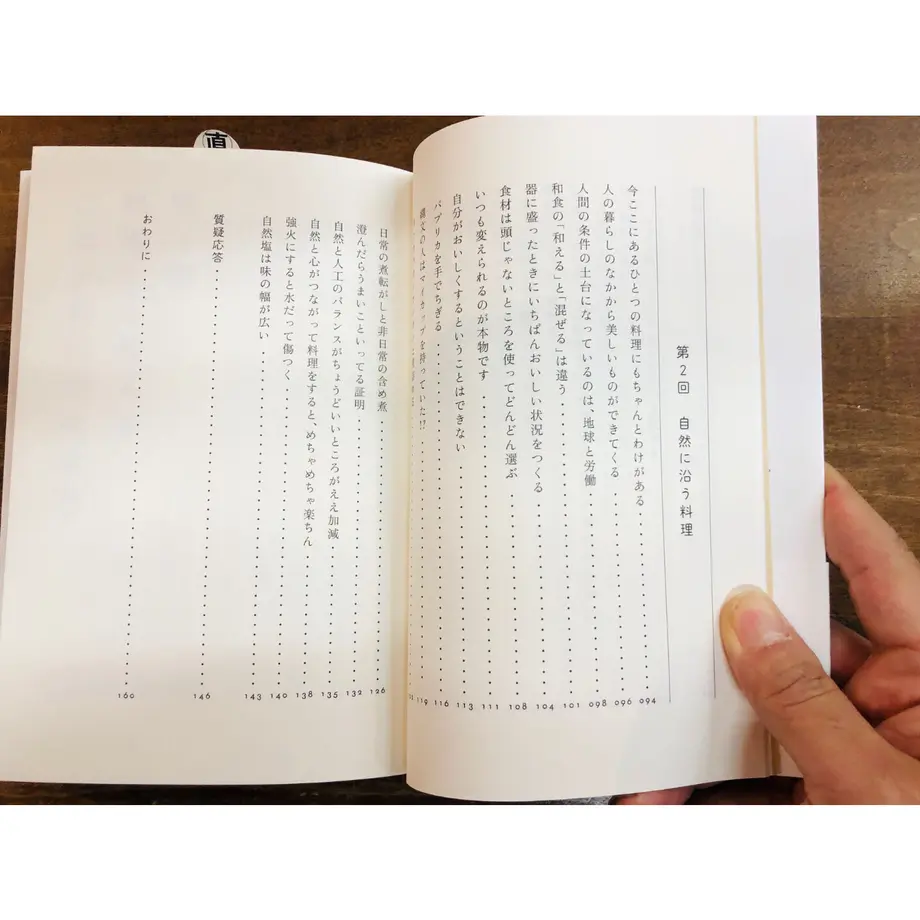 第2回 自然に沿う料理
今ここにあるひとつの料理にもちゃんとわけがある 094
人の暮らしのなかから美しいものができてくる 096
人間の条件の土台になっているのは、地球と労働 098
和食の「和える」と「混ぜる」は違う 101
器に盛ったときにいちばんおいしい状況をつくる 104
食材は頭じゃないところを使ってどんどん選ぶ 108
いつも変えられるのが本物です 111
自分がおいしくするということはできない 113
パプリカを手でちぎる 116
縄文の人はマイカップを持っていた!? 119
日常の煮転がしと非日常の含め煮 126
澄んだらうまいこといってる証明 132
自然と人工のバランスがちょうどいいところがええ加減 135
自然と心がつながって料理をすると、めちゃめちゃ楽ちん 138
強火にすると水だって傷つく 140
自然塩は味の幅が広い 143
質疑応答 146
おわりに 160
直